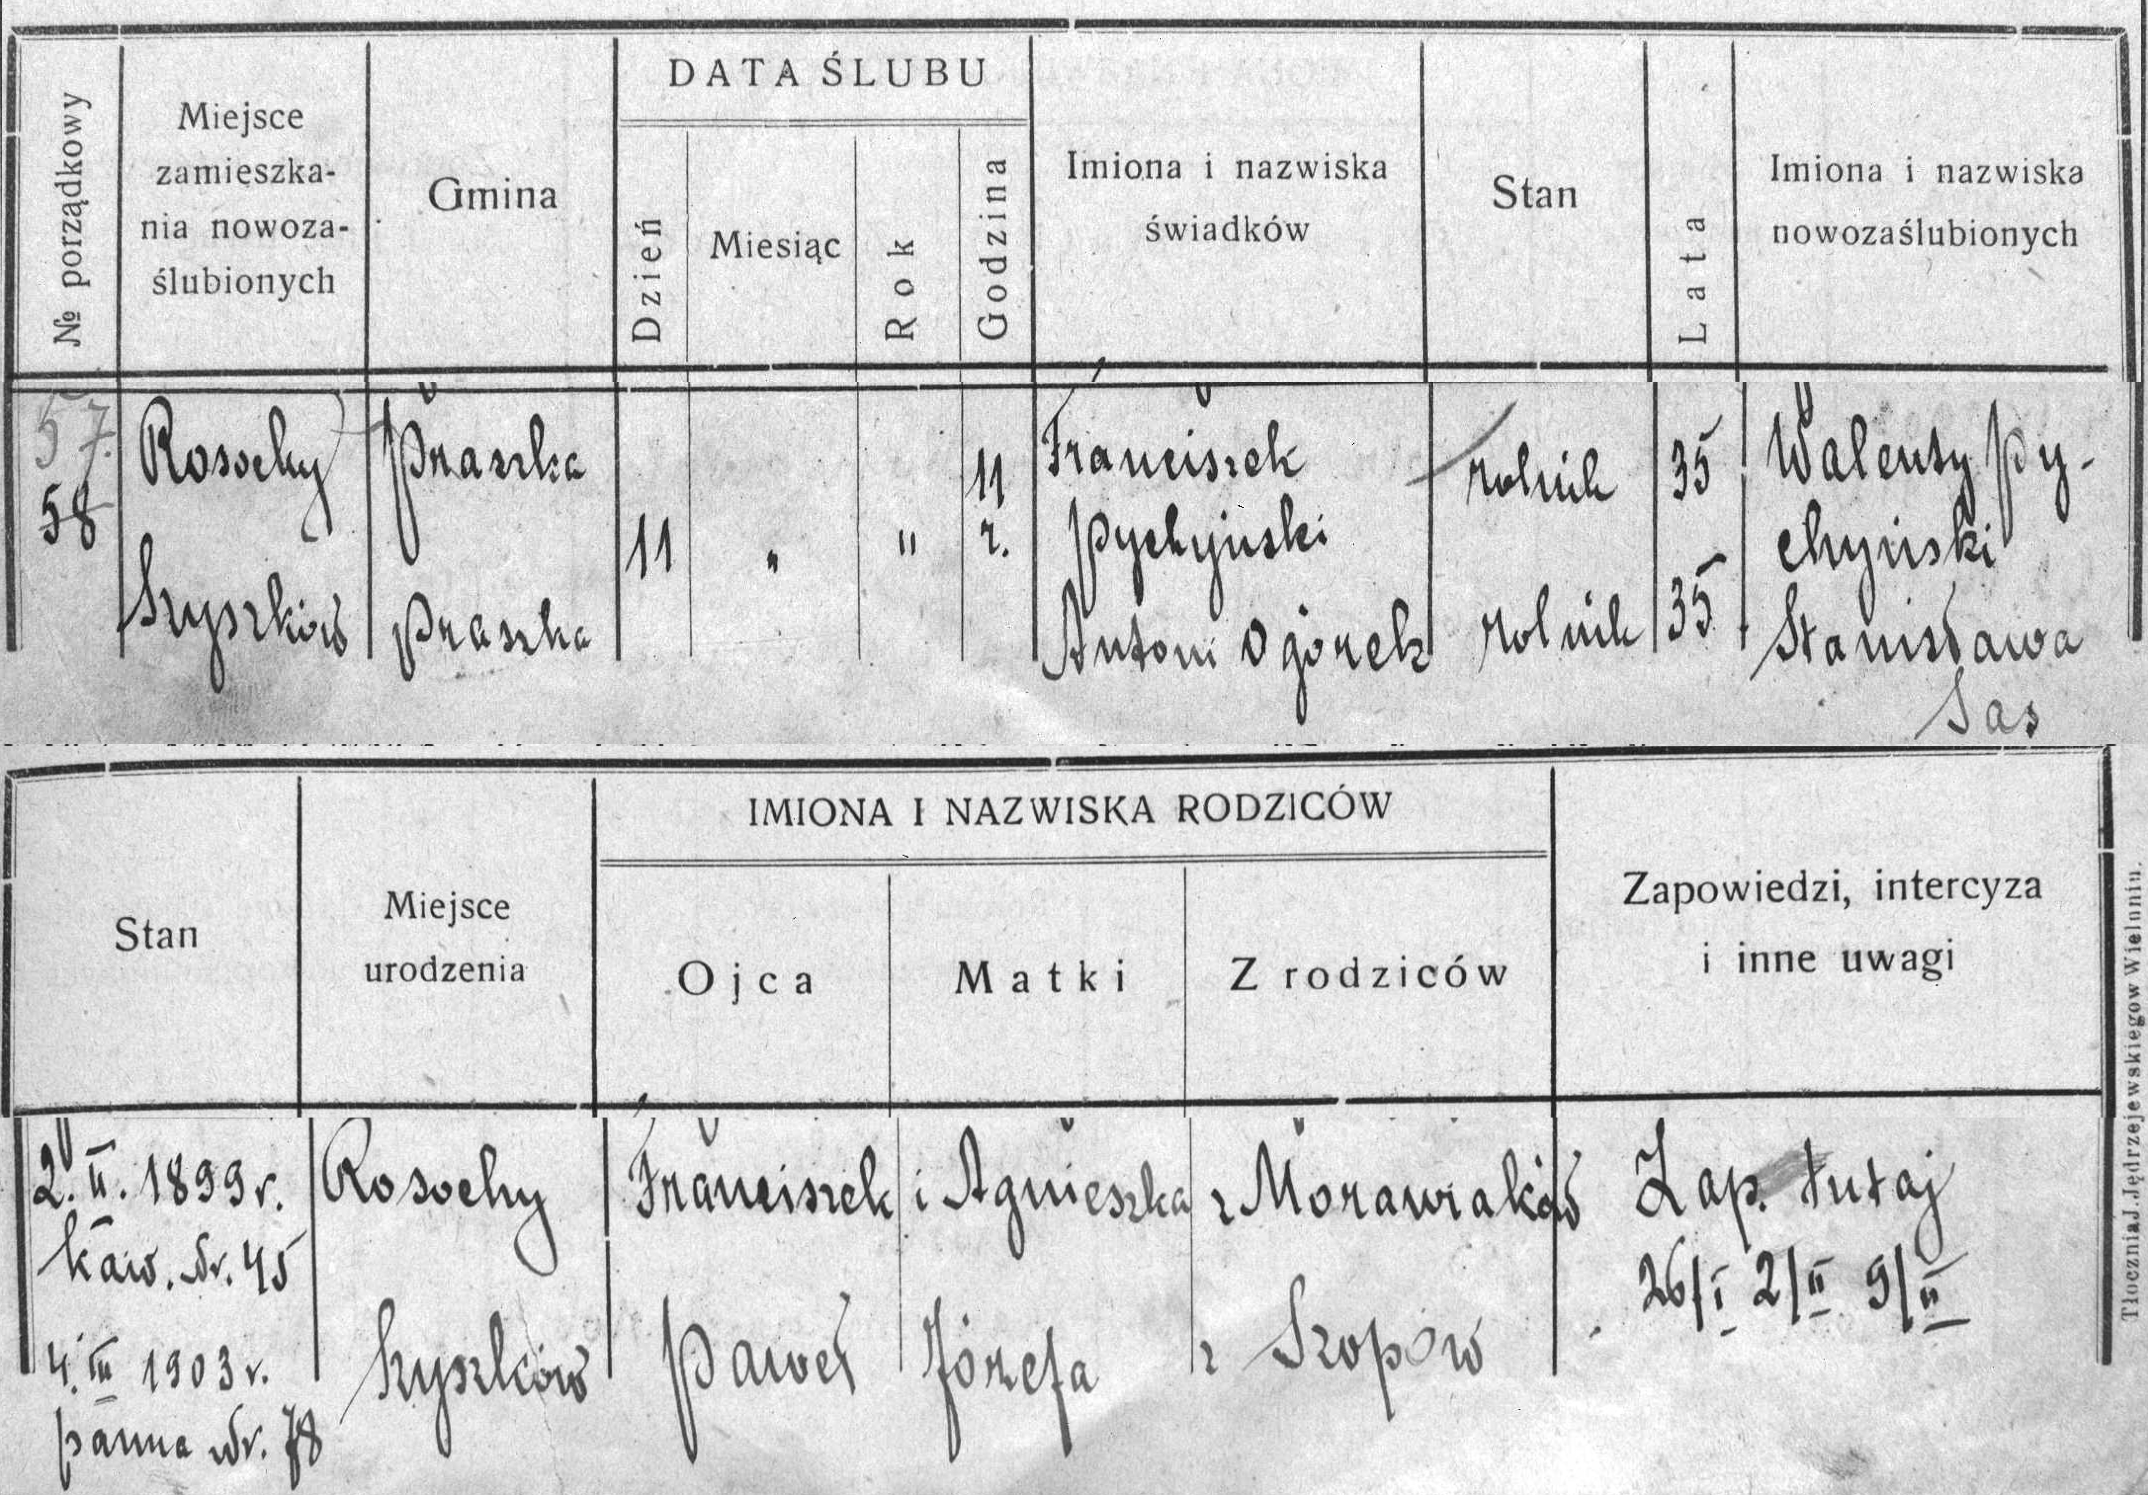 № porządkowy
Miejsce
zamieszka-
nia nowoza-
ślubionych
Gmina
DATA ŚLUBU
Dzień
Miesiąc
Rok
Godzina
Imiona i nazwiska
świadków
Stan
Lata
Imiona i nazwiska
nowozaślubionych
57.
58
Rosochy
Szyszków
Praszka
Praszka
11
"
"
11
r.
Franciszek
Pychyński
Antoni Ogórek
rolnik
rolnik
35
35
Walenty Py-
chyński
Stanisława
Sas
Stan
Miejsce
urodzenia
IMIONA I NAZWISKA RODZICÓW
Ojca
Matki
Z rodziców
Zapowiedzi, intercyza
i inne uwagi
2.II.1899r.
kaw. Nr. 45
4.III 1903r.
panna Nr. 78
Rosochy
Szyszków
Franciszek i Agnieszka z Morawiaków
Paweł Józefa z Szopów
Zap. tutaj
26/I 2/II 9/II
Tłocznia J. Jędrzejewskiego w Wieluniu.